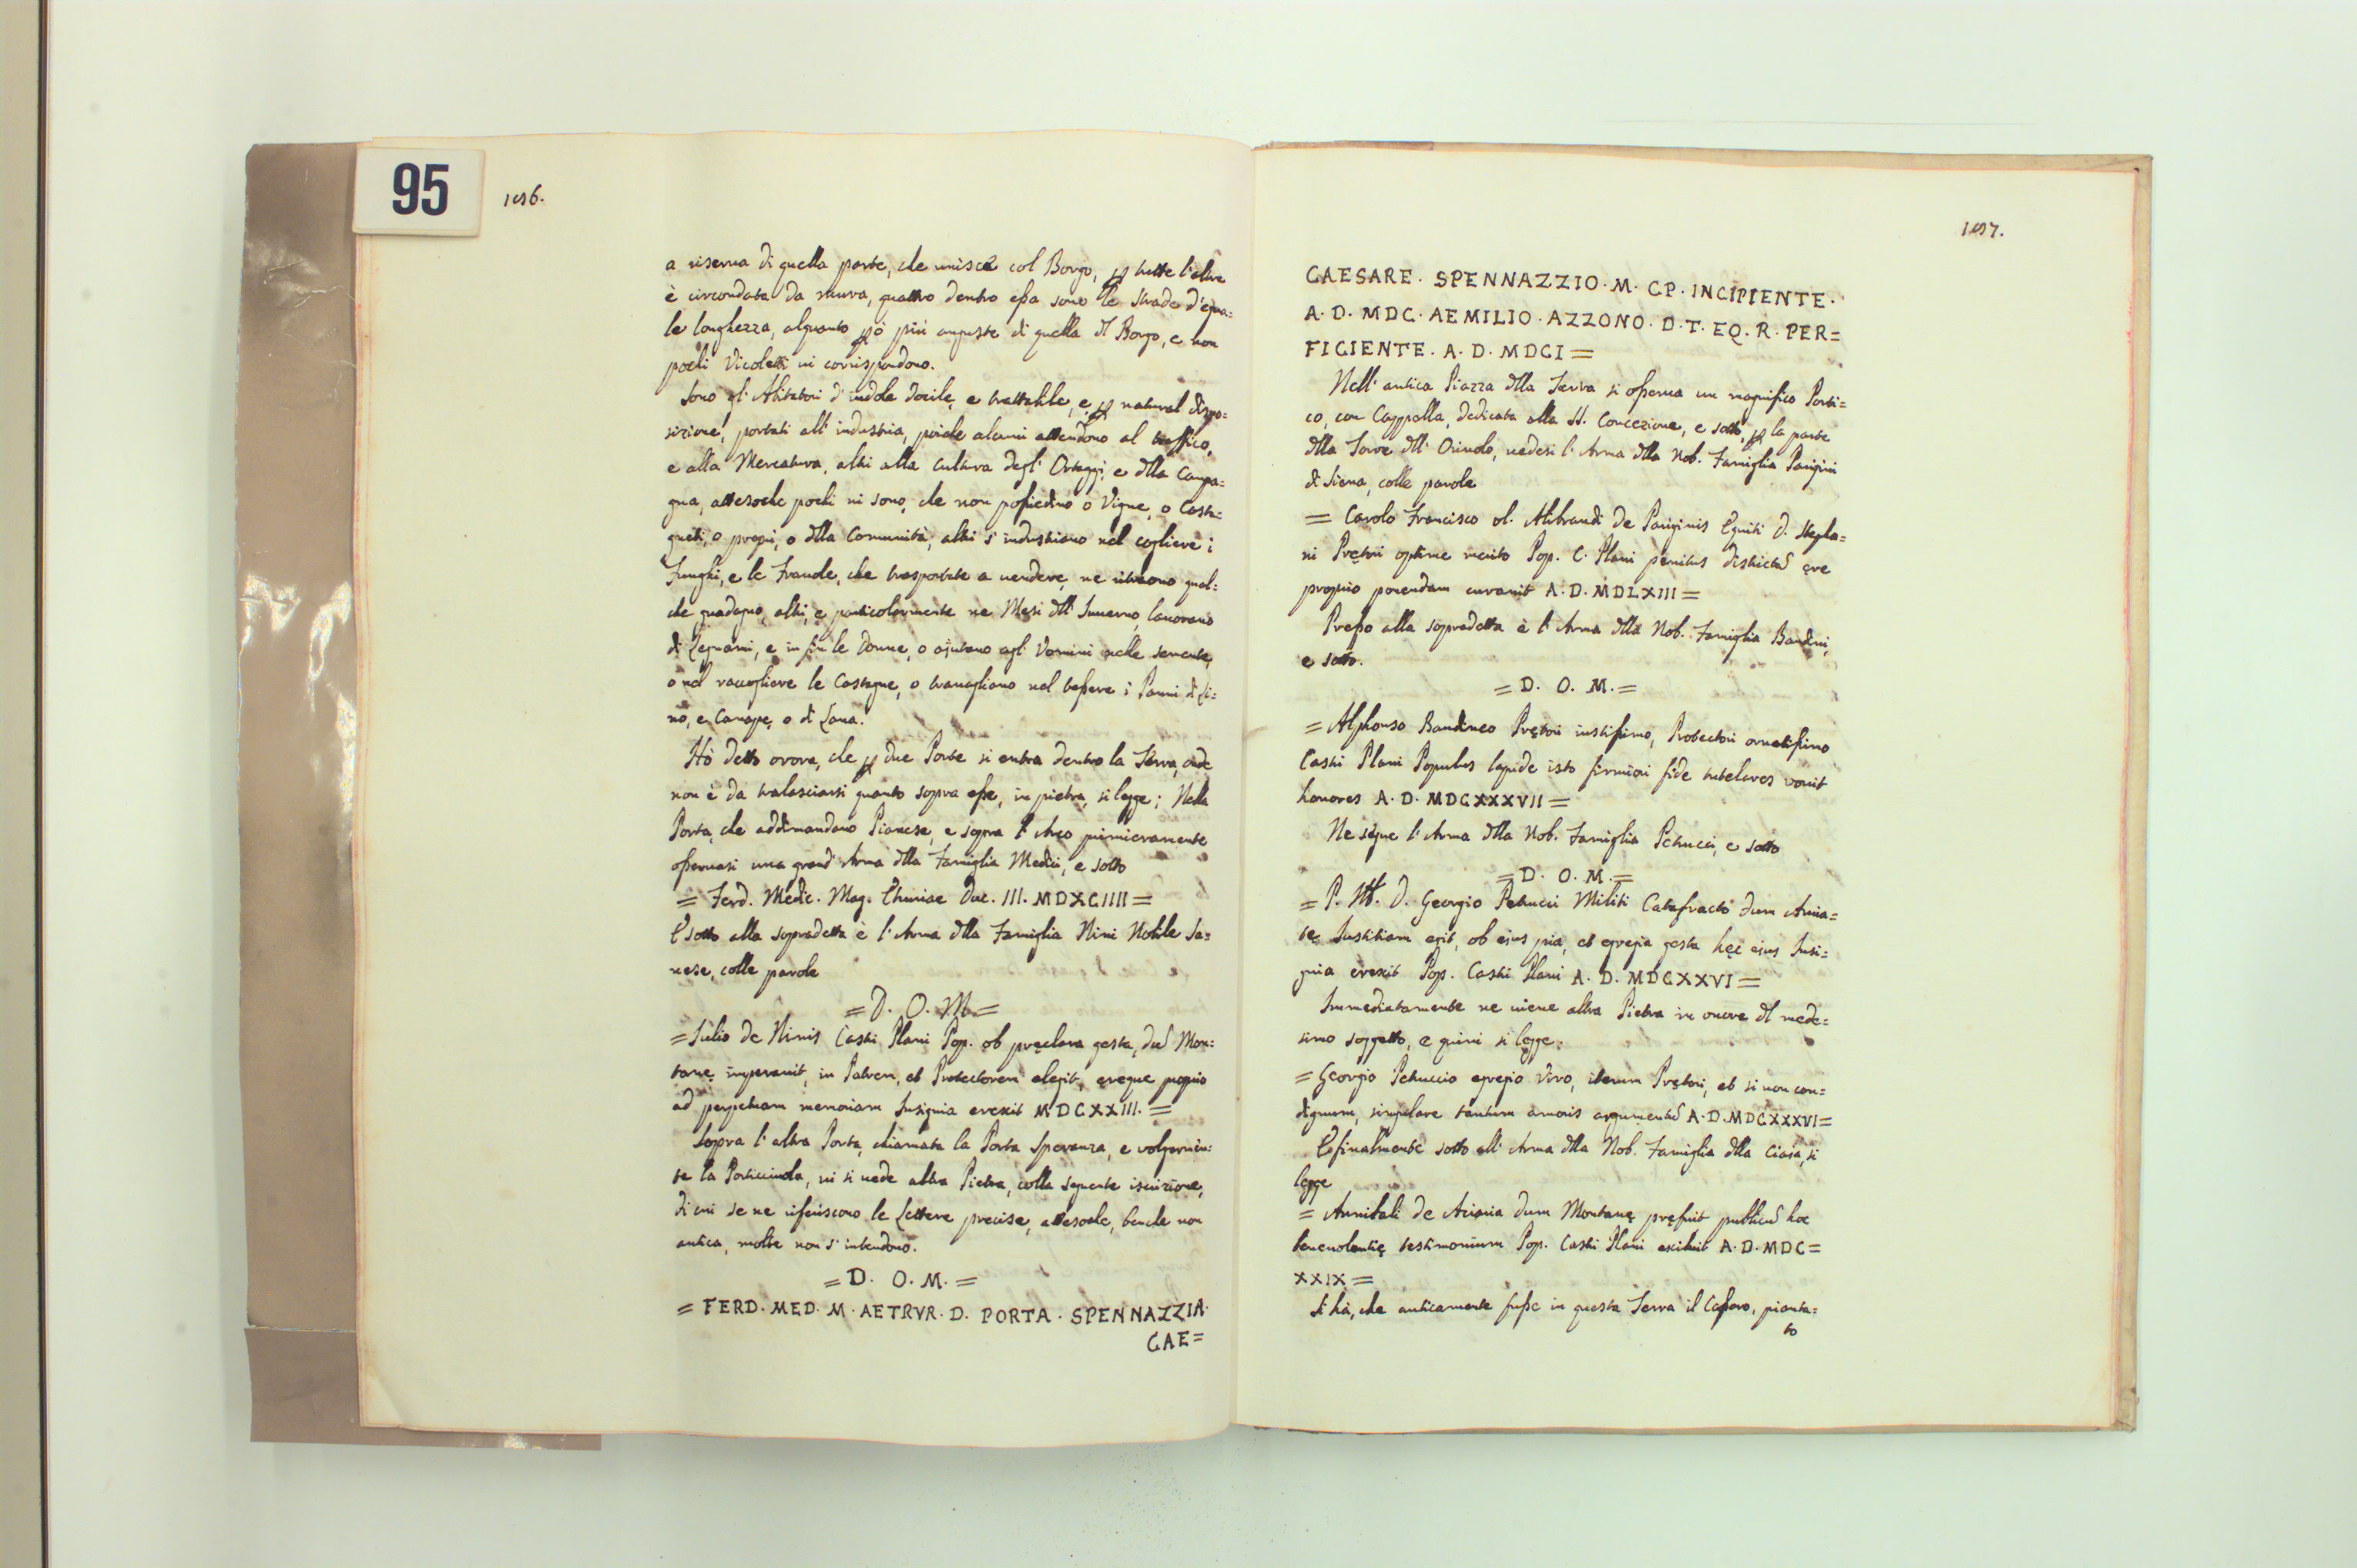 95
a riserva di quella parte, che unisce col Borgo, p tutte l'altre
è circondata da mura, quattro dentro essa sono le strade d'egua=
le longhezza, alquanto pò più anguste di quella dl Borgo, e non
pochi Vicoletti vi corrispondono.
Sono gl'Abitatori d'indole docile, e trattabile, e p natural dispo=
sizione, portati all'industria, poiche alcuni attendono al traffico,
e alla Mercatura, altri alla cultura degl'Orteggi, e dlla Campa=
gna, attesoche pochi vi sono, che non possiedino o Vigne, o Casta=
gneti, o propri, o dlla Comunità, altri s'industriano nel cogliere i
Funghi, e le Fraude, che trasportate a vendere, ne ritraono qual=
che guadagno, altri, e particolarmente ne Mesi dll'Inverno, lavorano
di Legnami, e in fin le Donne, o ajutano agl'Uomini nelle semente,
o nel raccogliere le Castagne, o travagliano nel tessere i Panni di Li=
no, e Canape, o di Lana.
Hò detto ovora, che p due Porte si entra dentro la Terra, onde
non è da tralasciarsi quanto sopra esse, in pietra, si legge; Nella
Porta, che addimandano Pianese, e sopra l'Arco primieramente
osservasi una grand'Arma dlla Famiglia Medici, e sotto
= Ferd. Medic. Mag. Ethruriae Duc. III. MDXCIIII =
E sotto alla sopradetta è l'Arma dlla Famiglia Nini Nobile Sa=
nese, colle parole
= D. O. M. =
= Iulio de Ninis Castri Plani Pop. ob pręclara gesta, dũ Mon=
tanę imperavit, in Patrem, et Protectorem elegit, ereque proprio
ad perpetuam memoriam Insignia erexit MDCXXIII. =
Sopra l'altra Porta, chiamata la Porta Speranza, e volgarmen=
te la Porticciola, vi si vede altra Pietra, colla seguente iscrizione,
di cui se ne riferiscono le Lettere precise, attesoche, benche non
antica, molte non s'intendono.
= D. O. M. =
= FERD. MED. M. AETRVR. D. PORTA. SPENNAZZIA.
CAE=
CAESARE. SPENNAZZIO. M. C.P. INCIPIENTE.
A. D. MDC. AEMILIO. AZZONO. D. T. EQ. R. PER=
FICIENTE. A. D. MDCI =
Nell'antica Piazza dlla Terra si osserva un magnifico Porti=
co, con Cappella, dedicata alla SS. Concezione, e sotto, p la parte
dlla Torre dll'Oriuolo, vedesi l'Arma dlla Nob. Famiglia Parigini
di Siena, colle parole
= Carolo Francisco ol. Alibrandi de Pariginis Equiti D. Stepha=
ni Prętori optime merito Pop. C. Plani penitus districtũ ęre
proprio ponendam curavit A. D. MDLXIII =
Presso alla sopradetta è l'Arma dlla Nob. Famiglia Bandini,
e sotto.
= D. O. M. =
= Alphonso Bandineo Prętori iustissimo, Protectori ornatissimo
Castri Plani Populus lapide isto firmiori fide tutelares vovit
honores A. D. MDCXXXVII =
Ne segue l'Arma dlla Nob. Famiglia Petrucci, e sotto
= D. O. M. =
= P. M. D. Georgio Petrucci Militi Catafracto dum Amia=
tę Iustitiam egit, ob ejus pia, et egregia gesta hęc ejus Insi=
gnia erexit Pop. Castri Plani A. D. MDCXXVI =
Immediatamente ne viene altra Pietra in onore dl mede=
simo soggetto, e quivi si legge:
= Georgio Petruccio egregio viro, iterum Prętori, et si non con=
dignum, singulare tantum amoris argumentũ A. D. MDCXXXVI =
E finalmente sotto all'Arma dlla Nob. Famiglia dlla Ciaja, si
legge
= Annibali de Aciaria dum Montanę pręfuit publicũ hoc
benevolentię testimonium Pop. Castri Plani exibuit A. D. MDC=
XXIX =
Si hà, che anticamente fusse in questa Terra il Cassero, pianta=
to